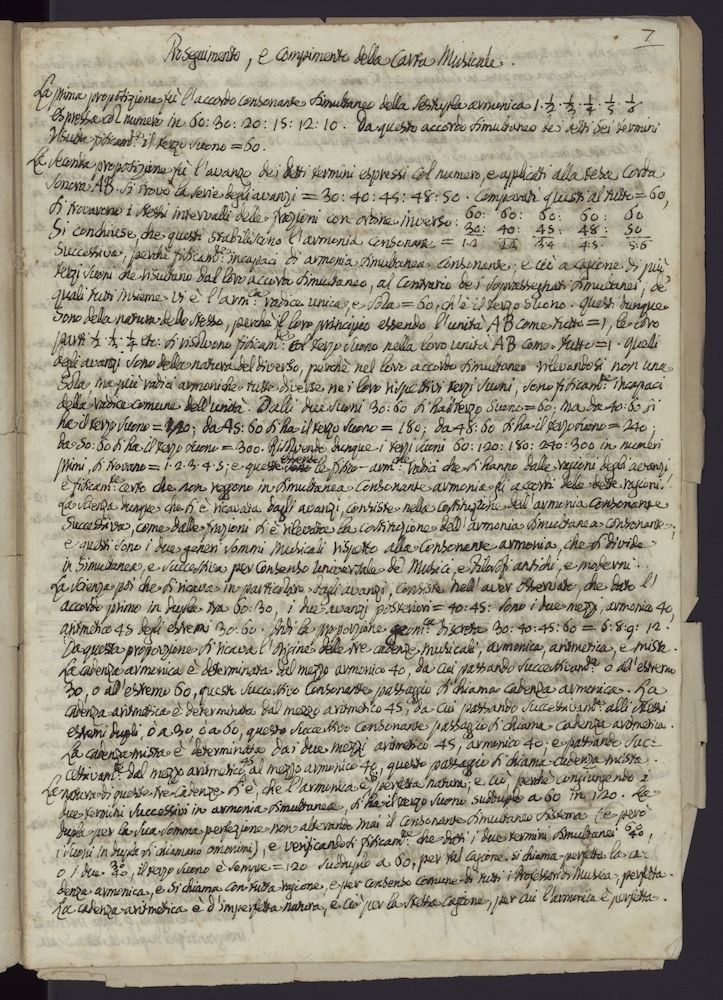 7
Proseguimento, e Compimento della Carta Musicale.
La prima proposizione fù l'accordo consonante simultaneo della sestupla armonica 1·1/2·1/3·1/4·1/5·1/6
espressa col numero in 60:30:20:15:12:10. Da questo accordo simultaneo de i detti sei termini
risulta fisicam.te il terzo suono = 60.
La seconda proposizione fù l'avanzo de i detti termini espressi col numero, e applicati alla tesa Corda
sonora AB. Si trovò la serie degli avanzi = 30:40:45:48:50. Comparati questi al tutto = 60,
si trovarono i stessi intervalli delle frazioni con ordine inverso: 60: 60: 60: 60: 60
30: 40: 45: 48: 50
Si conchiuse, che questi stabiliscono l'armonia consonante = 1·2 2·3 3·4 4·5 5·6
successiva, perchè fisicam.te incapaci di armonia simultanea consonante; e ciò a cagione di più
terzi suoni che risultano dal loro accordo simultaneo, al contrario de i soprassegnati simultanei, de'
quali tutti insieme vi è l'arm.ca radice unica, e sola = 60, ch'è il terzo suono. Questi dunque
sono della natura dello stesso, perchè il loro principio essendo l'unità AB come tutto = 1, le loro
parti 1/2·1/3·1/4 etc: si risolvono fisicam.te col terzo suono nella loro unità AB come tutto = 1. Quelli
degli avanzi sono della natura del diverso, perchè nel loro accordo simultaneo rilevandosi non una
sola, ma più radici armoniche tutte diverse ne i loro rispettivi terzi suoni, sono fisicam.te incapaci
della radice comune dell'unità. Dalli due suoni 30:60 si ha il terzo suono = 60; ma da 40:60 si
ha il terzo suono = 120; da 45:60 si ha il terzo suono = 180; da 48:60 si ha il terzo suono = 240;
da 50:60 si ha il terzo suono = 300. Risolvendo dunque i terzi suoni 60:120:180:240:300 in numeri
primi, si trovano = 1·2·3·4·5; e queste essendo le fisico-arm.che radici che si hanno dalle ragioni degli avanzi,
è fisicam.te certo che non reggono in simultanea consonante armonia gli accordi delle dette ragioni.
La scienza dunque che si è ricavata dagli avanzi, consiste nella costituzione dell'armonia consonante
successiva, come dalle frazioni si è rilevata la costituzione dell'armonia simultanea consonante;
e questi sono i due generi sommi musicali rispetto alla consonante armonia, che si divide
in simultanea, e successiva per consenso universale de' Musici, e Filosofi antichi, e moderni.
La scienza poi che si ricava in particolare dagli avanzi, consiste nell'aver osservato, che dato l'
accordo primo in dupla tra 60:30, i due avanzi posteriori = 40:45: sono i due mezzi, armonico 40,
aritmetico 45 degli estremi 30:60. Indi la proporzione geom.ca discreta 30:40:45:60 = 6:8:9:12.
Da questa proporzione si ricava l'origine delle tre cadenze musicali, armonica, aritmetica, e mista.
La cadenza armonica è determinata dal mezzo armonico 40, da cui passando successivam.te o all'estremo
30, o all'estremo 60, questo successivo consonante passaggio si chiama cadenza armonica. La
cadenza aritmetica è determinata dal mezzo aritmetico 45, da cui passando successivam.te alli stessi
estremi dupli, o a 30, o a 60, questo successivo consonante passaggio si chiama cadenza aritmetica.
La cadenza mista è determinata da i due mezzi aritmetico 45, armonico 40; e passando suc=
cessivam.te dal mezzo aritmetico 45 al mezzo armonico 40, questo passaggio si chiama cadenza mista.
La natura di queste tre cadenze si è, che l'armonica è di perfetta natura; e ciò perchè congiungendo i
due termini successivi in armonia simultanea, si ha il terzo suono sudduplo a 60 in 120. La
dupla per la sua somma perfezione non alterando mai il consonante simultaneo sistema (e però
i suoni in dupla si chiamano omonimi), e verificandosi fisicam.te che dati i due termini simultanei 60/40,
o i due 30/40, il terzo suono è sempre = 120 sudduplo a 60, per tal cagione si chiama perfetta la ca=
denza armonica, e si chiama con tutta ragione, e per consenso comune di tutti i Professori di Musica, perfetta.
La cadenza aritmetica è d'imperfetta natura, e ciò per la stessa cagione, per cui l'armonica è perfetta.